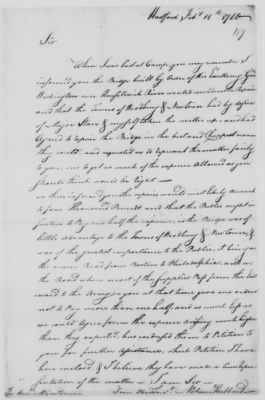 Hartford Feby 10th 1780
Sir
When I was last at Camp you may remember I
informed you the Bridge built by Order of his Excellency Genl
Washington over River wanted
and that the Towns of & Newtown had by Advice
of Major Starr & myself taken the matter up & and had
Agreed to repair the Bridge in the best and Cheapest manner
they could, and requested me to represent the matter fairly
to you, and to get as much of the expence Allowed as you
should think would be right
us then informed you the expence would most likely Amount
to four thousand Pounds and that the Public ought in
justice to Pay one half the expence, as the Bridge was of
little Advantage to the Towns of & Newtown, &
was of the greatest importance to the Publick, it being on
the main Road from Boston to Philadelphia, and on
the Road where most of the Supplies Pass from the East
ward to the Army you at that time gave me orders
not to Pay more than one half, and as much less as
we could Agree for the expence arising much higher
than they expected, has induced them to Petition to
you for further Assistance, which Petition I have
here inclosed & I believe they have made a true
sentation of the matter I am Sir
Hubbard